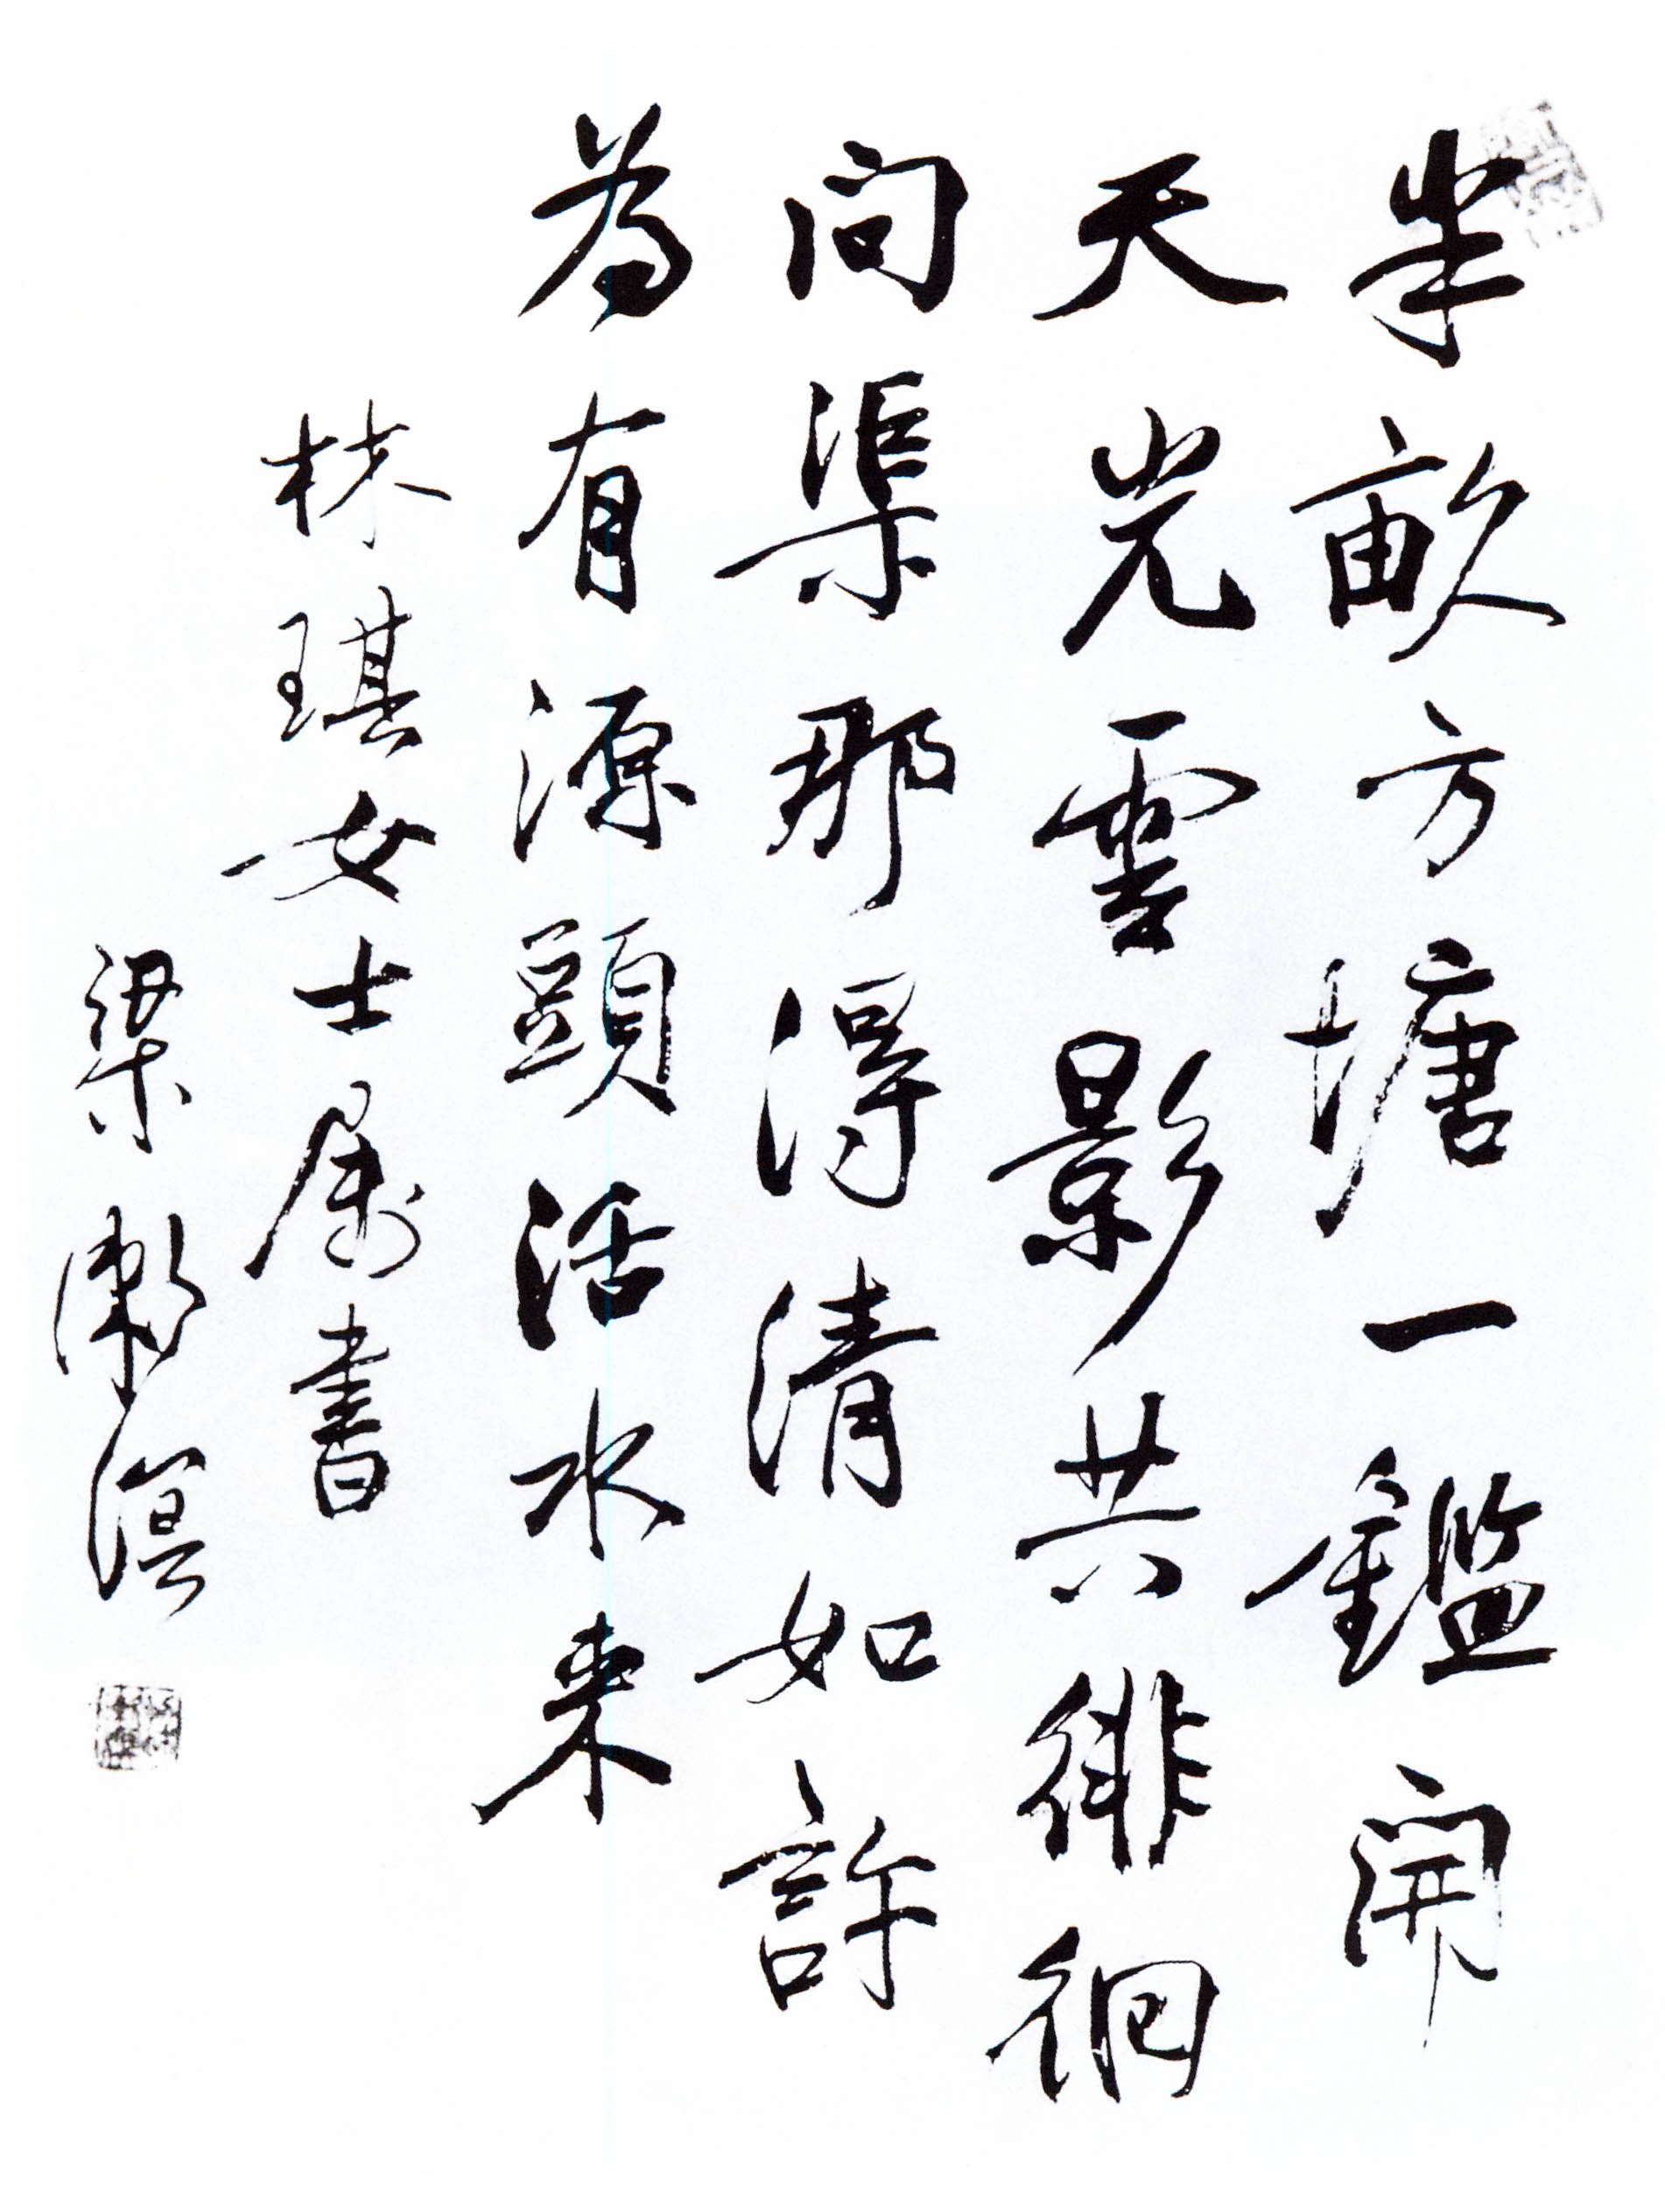 半畝方塘一鑑開
天光雲影共徘徊
问渠那得清如許
為有源頭活水来
林琪女士属書
梁漱溟